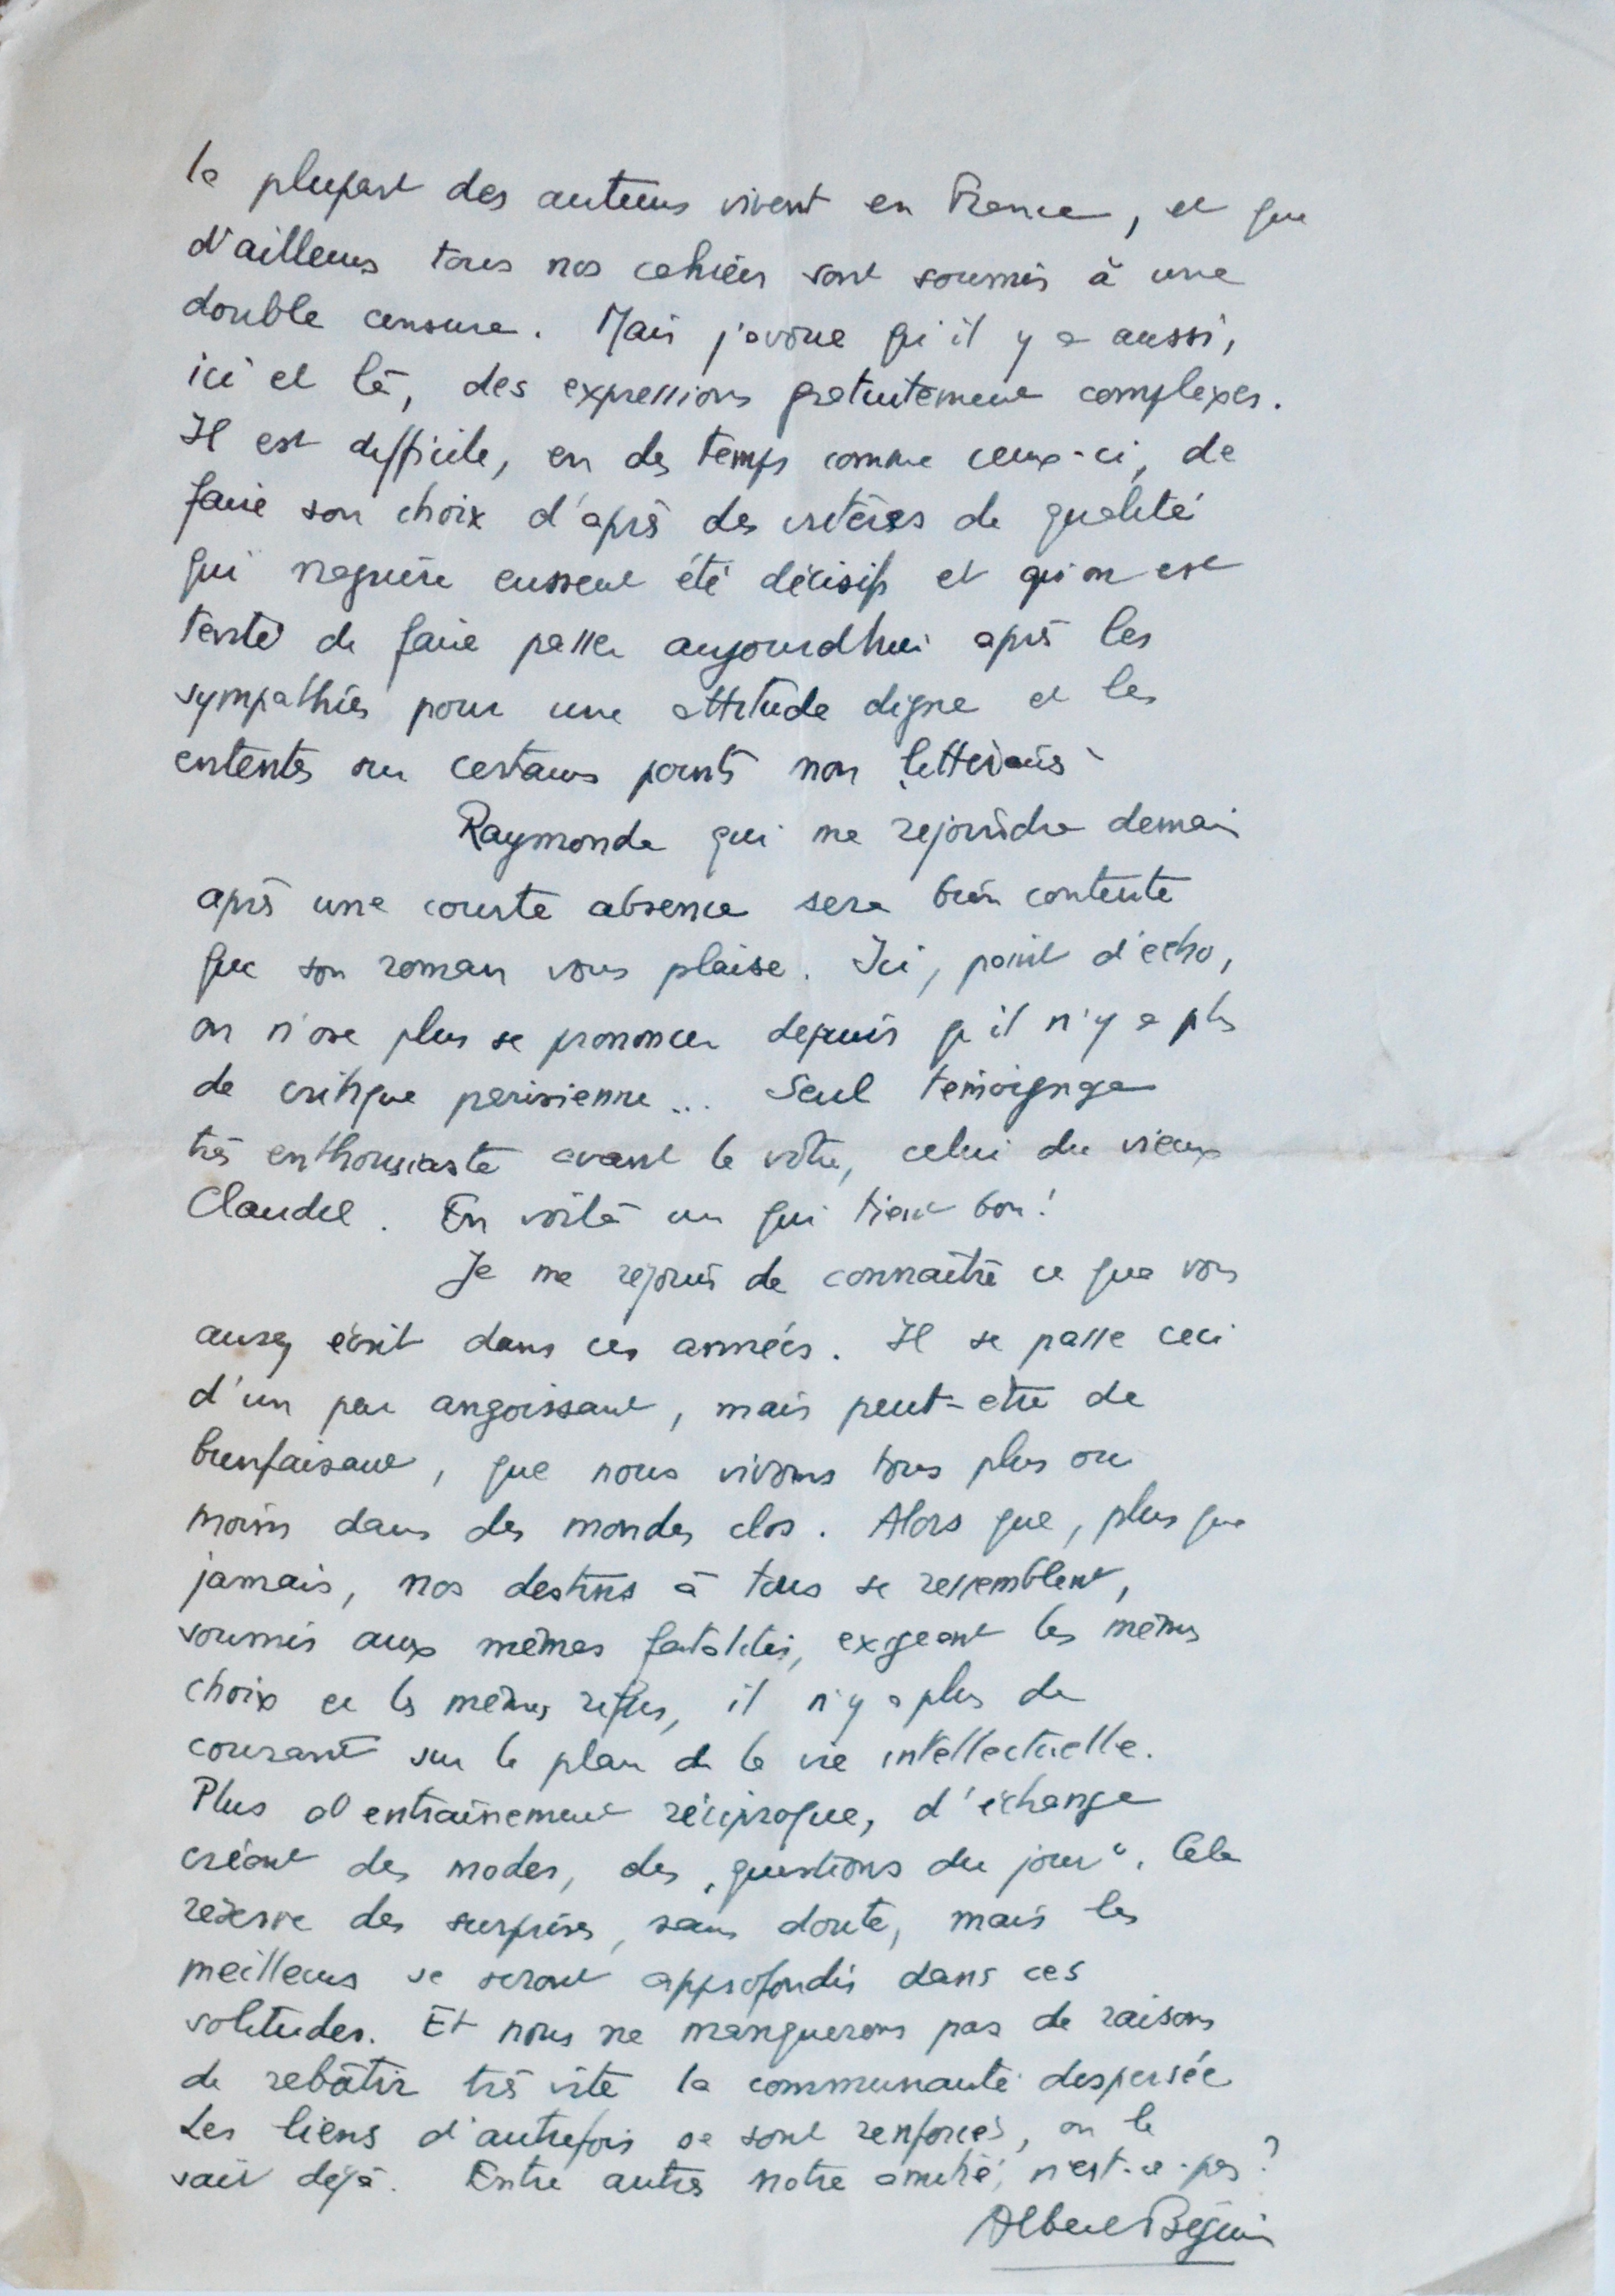 la plupart des auteurs vivent en France, et que
d'ailleurs tous nos cahiers sont soumis à une
double censure. Mais j'avoue qu'il y a aussi,
ici et là, des expressions gratuitement complexes.
Il est difficile, en des temps comme ceux-ci, de
faire son choix d'après des critères de qualité
qui naguère eussent été décisifs et qu'on est
tenté de faire passer aujourd'hui après les
sympathies pour une attitude digne et les
ententes sur certains points non littéraires.
Raymonde qui me rejoindra demain
après une courte absence sera bien contente
que son roman vous plaise. Ici, point d'écho,
on n'ose plus se prononcer depuis qu'il n'y a plus
de critique parisienne... Seul témoignage
très enthousiaste avant le vôtre, celui du vieux
Claudel. En voilà un qui tient bon!
Je me réjouis de connaître ce que vous
aurez écrit dans ces années. Il se passe ceci
d'un peu angoissant, mais peut-être de
bienfaisant, que nous vivons tous plus ou
moins dans des mondes clos. Alors que, plus que
jamais, nos destins à tous se ressemblent,
soumis aux mêmes fatalités, exigeant les mêmes
choix et les mêmes refus, il n'y a plus de
courant sur le plan de la vie intellectuelle.
Plus d'entraînement réciproque, d'échange
créant des modes, des „questions du jour“. Cela
réserve des surprises, sans doute, mais les
meilleurs se seront approfondis dans ces
solitudes. Et nous ne manquerons pas de raisons
de rebâtir très vite la communauté dispersée.
Les liens d'autrefois se sont renforcés, on le
sait déjà. Entre autres notre amitié, n'est-ce-pas?
Albert Béguin